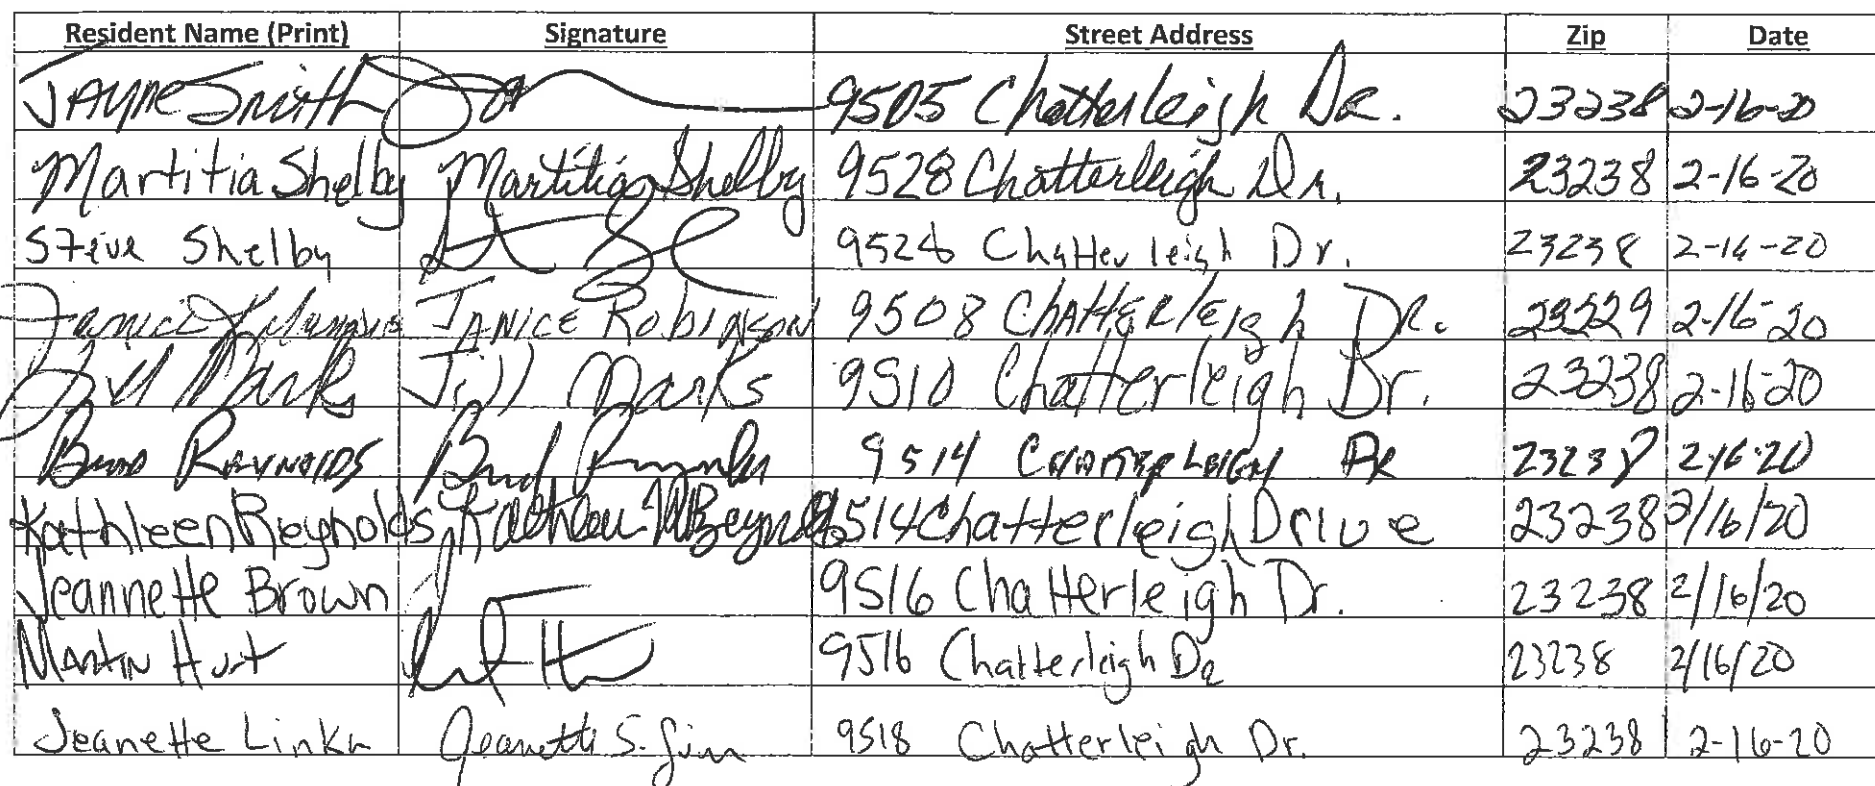 Resident Name (Print) Signature Street Address Zip Date
JAYNE Smith 9505 Chatterleigh DR. 23238 2-16-20
Martitia Shelby Martitia Shelby 9528 Chatterleigh Dr. 23238 2-16-20
Steve Shelby 9528 Chatterleigh Dr. 23238 2-16-20
Janice JANICE ROBINSON 9508 CHATTERLEIgh DR. 23229 2-16-20
Jill Marks Jill Marks 9510 Chatterleigh Dr. 23238 2-16-20
Bud REYNOLDS Bud Reynolds 9514 CHATTERLEIGH DR 23238 2-16-20
Kathleen Reynolds Kathleen M Reynolds 9514 Chatterleigh Drive 23238 2/16/20
Jeannette Brown 9516 Chatterleigh Dr. 23238 2/16/20
Martin Hurt 9516 Chatterleigh DR 23238 2/16/20
Jeanette Linka Jeanette S. 9518 Chatterleigh Dr. 23238 2-16-20